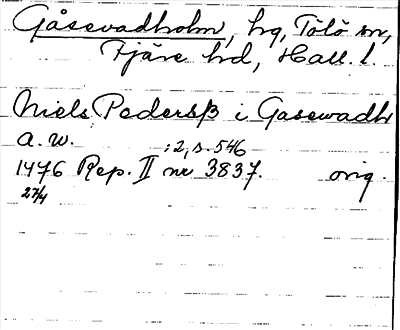 Gåsevadholm, hg, Tölö sn,
Fjäre hd, Hall. l.
Niels Pedersß i Gasewadh
a. w. :2, s. 546
1476 Rep. II nr 3837. orig.
27/4